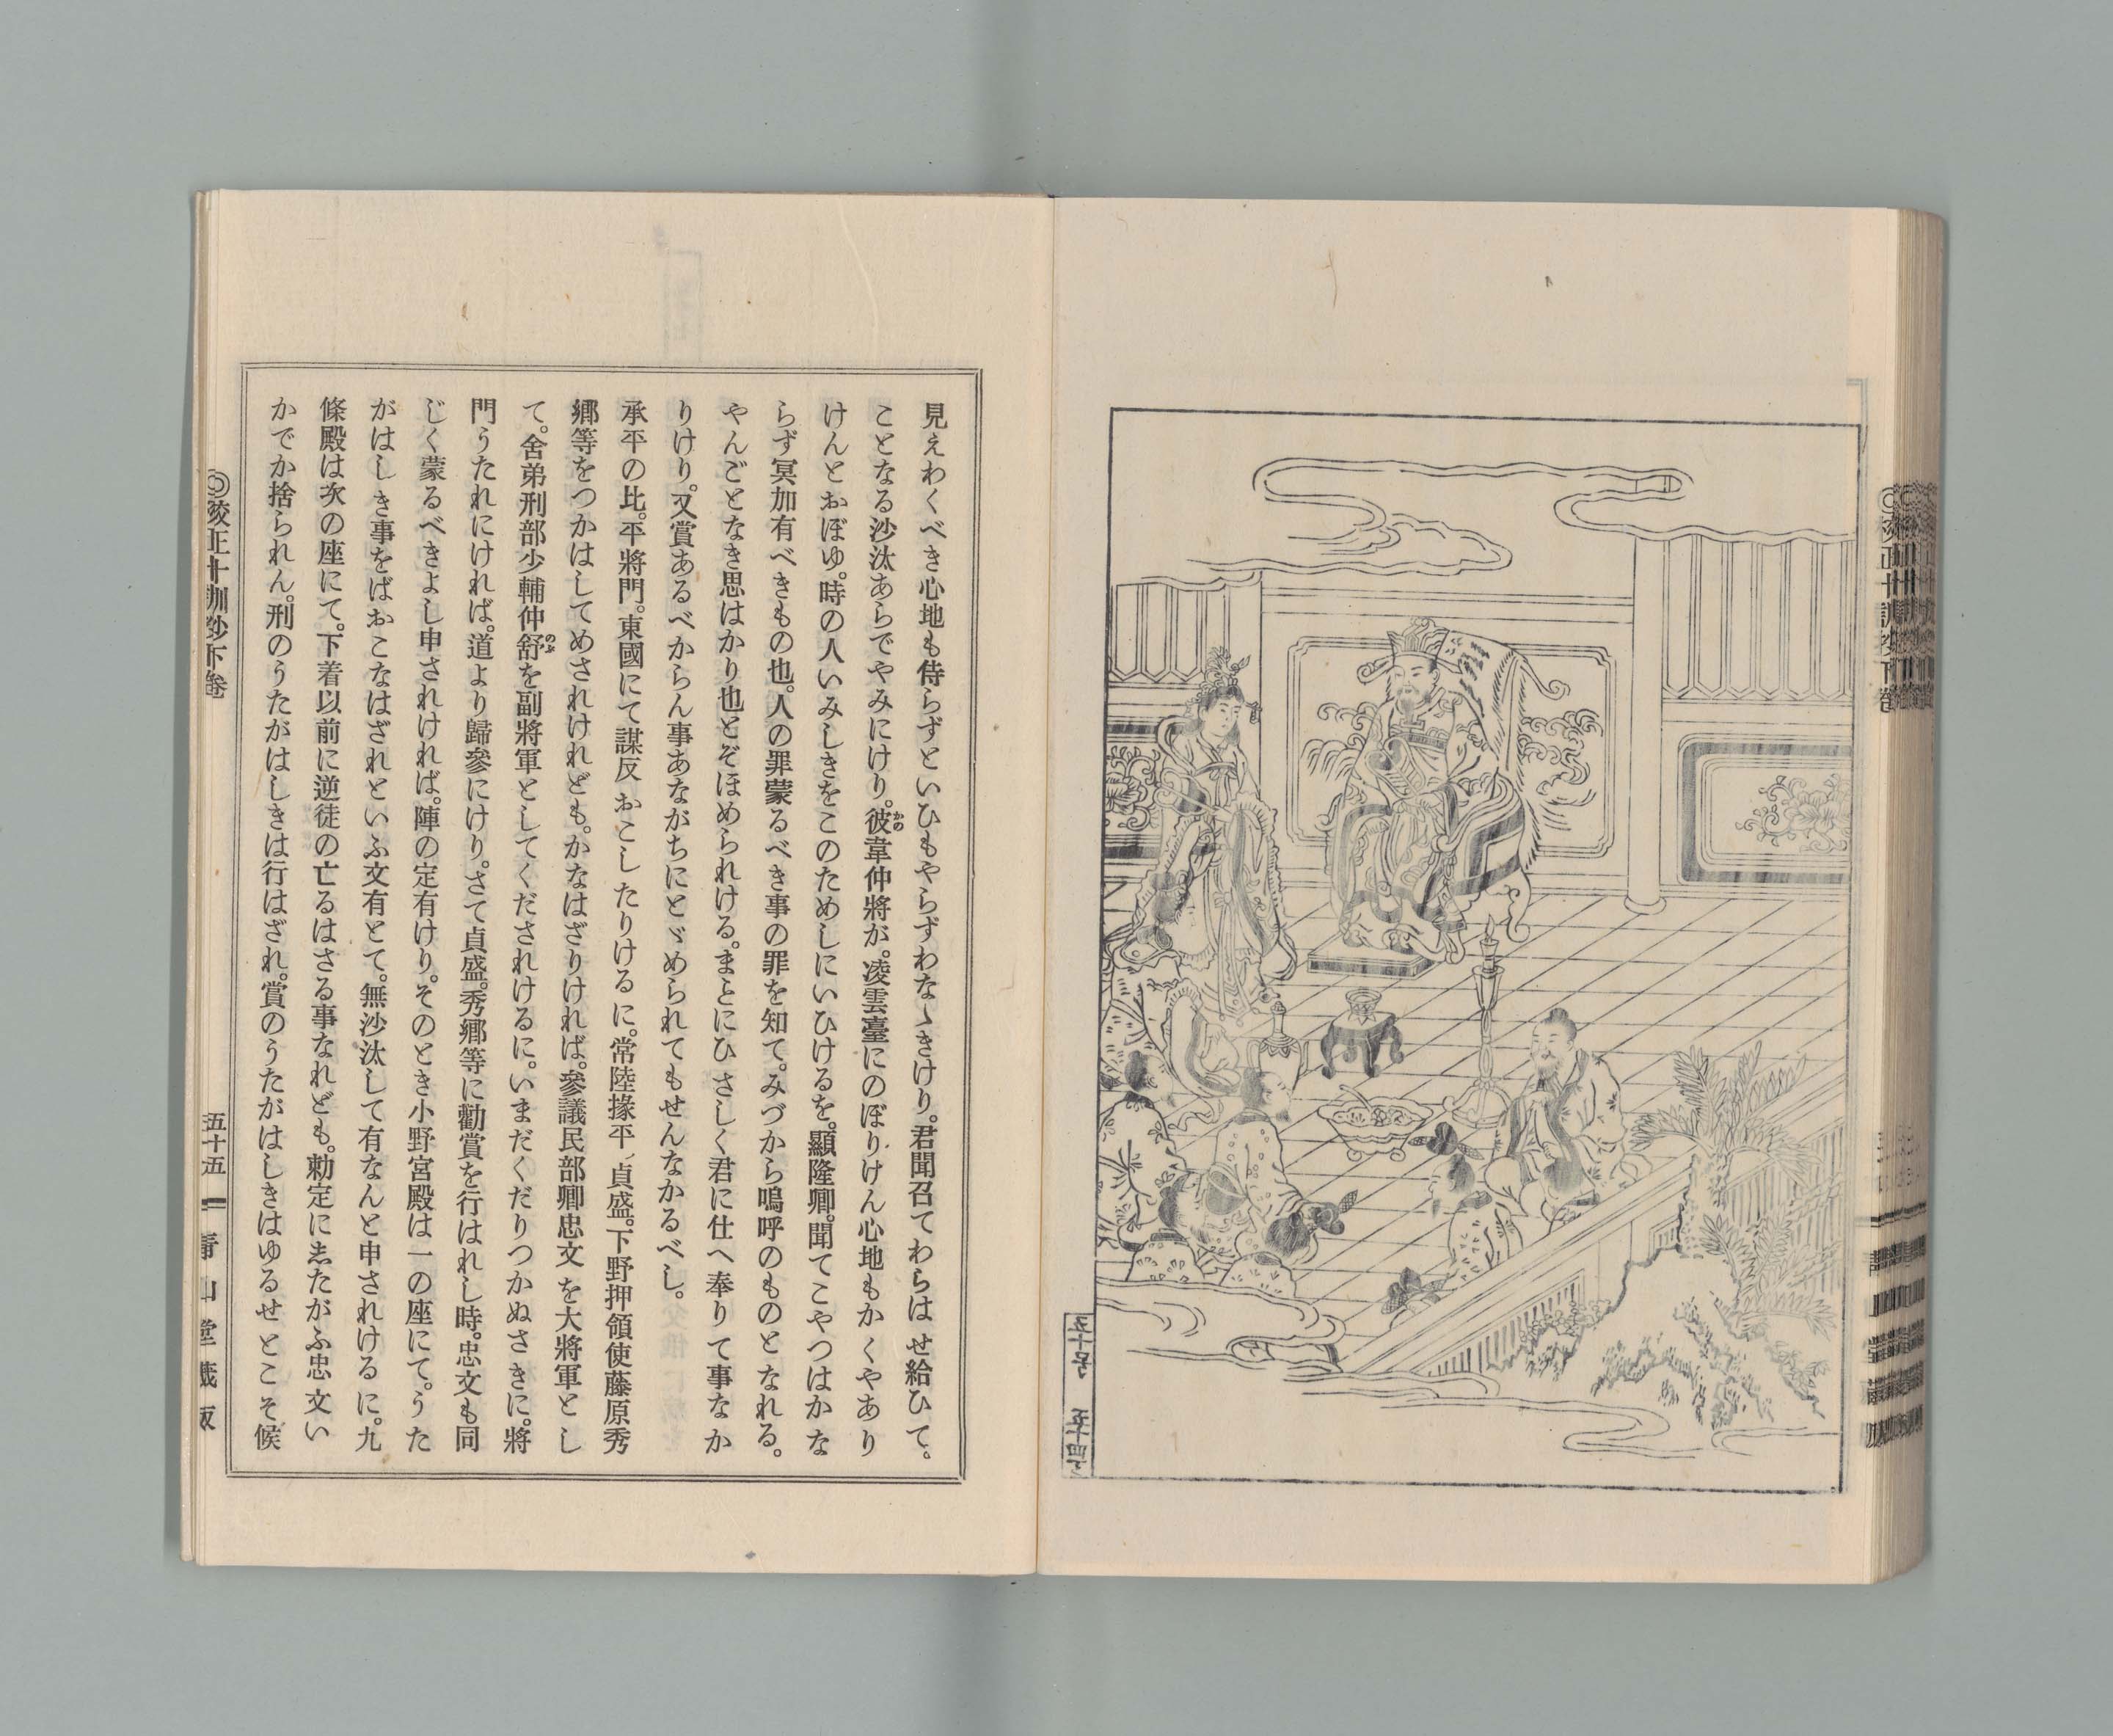 見えわくべき心地も侍らずといひもやらずわなゝきけり。君聞召てわらはせ給ひて。
ことなる沙汰あらでやみにけり。彼韋仲將が。凌雲臺にのぼりけん心地もかくやあり
けんとおぼゆ。時の人いみしきをこのためしにいひけるを。顯隆卿。聞てこやつはかな
らず冥加有べきもの也。人の罪蒙るべき事の罪を知て。みづから嗚呼のものとなれる。
やんごとなき思はかり也とぞほめられける。まとにひさしく君に仕へ奉りて事なか
りけり。又賞あるべからん事あながちにとゞめられてもせんなかるべし。
承平の比。平將門。東國にて謀反おこしたりけるに。常陸掾平貞盛。下野押領使藤原秀
鄕等をつかはしてめされけれども。かなはざりければ。參議民部卿忠文を大將軍とし
て。舍弟刑部少輔仲舒を副將軍としてくだされけるに。いまだくだりつかぬさきに。將
門うたれにければ。道より歸參にけり。さて貞盛。秀鄕等に勸賞を行はれし時。忠文も同
じく蒙るべきよし申されければ。陣の定有けり。そのとき小野宮殿は一の座にて。うた
がはしき事をばおこなはざれといふ文有とて。無沙汰して有なんと申されけるに。九
條殿は次の座にて。下着以前に逆徒の亡るはさる事なれども。勅定にゑたがふ忠文い
かでか捨られん。刑のうたがはしきは行はざれ。賞のうたがはしきはゆるせとこそ候
かの
のぶ
◎校正十訓抄下卷
五十五
靑山堂藏版
五十ノ五十四ノ